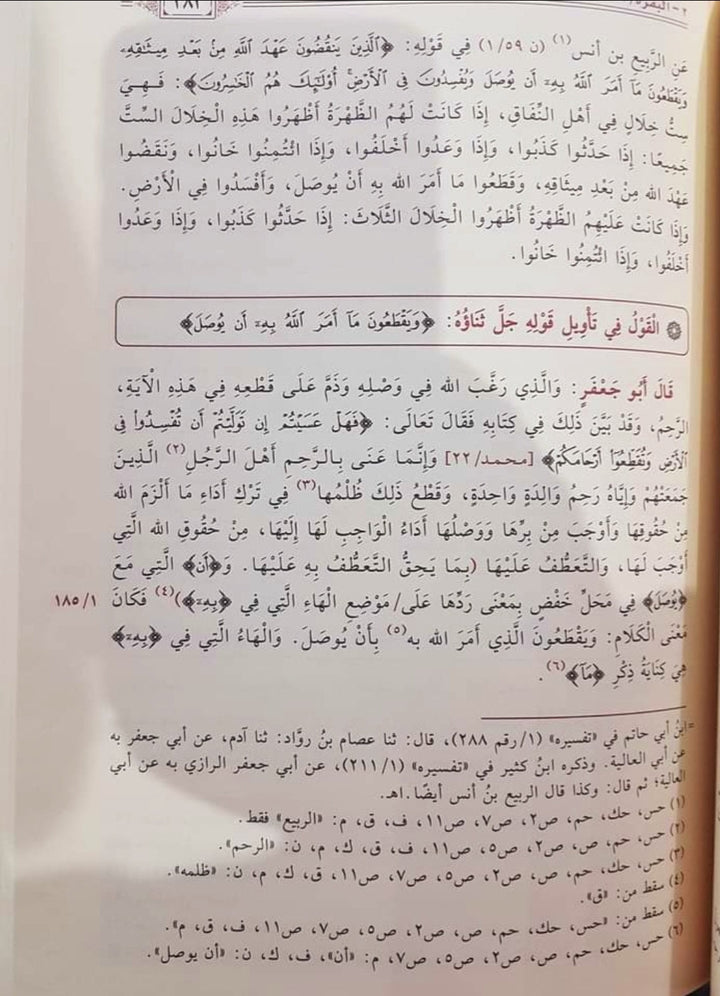 ٢ - البقرة
عَنِ الرَّبِيعِ بن أنس(١) (ن ١/٥٩) فِي قَوْلِهِ: ﴿ٱلَّذِينَ يَنقُضُونَ عَهْدَ ٱللَّهِ مِنۢ بَعْدِ مِيثَٰقِهِۦ
وَيَقْطَعُونَ مَآ أَمَرَ ٱللَّهُ بِهِۦٓ أَن يُوصَلَ وَيُفْسِدُونَ فِى ٱلْأَرْضِ أُوْلَٰٓئِكَ هُمُ ٱلْخَٰسِرُونَ﴾: فَـهِـيَ
سِتُّ خِلَالٍ فِي أَهْلِ النِّفَاقِ، إِذَا كَانَتْ لَهُمُ الظَّهْرَةُ أَظْهَرُوا هَذِهِ الْخِلَالَ السِّتَّ
جَمِيعًا: إِذَا حَدَّثُوا كَذَبُوا، وَإِذَا وَعَدُوا أَخْلَفُوا، وَإِذَا ائْتُمِنُوا خَانُوا، وَنَقَضُوا
عَهْدَ الله مِنْ بَعْدِ مِيثَاقِهِ، وَقَطَعُوا مَا أَمَرَ الله بِهِ أَنْ يُوصَلَ، وَأَفْسَدُوا فِي الْأَرْضِ.
وَإِذَا كَانَتْ عَلَيْهِمُ الظَّهْرَةُ أَظْهَرُوا الْخِلَالَ الثَّلَاثَ: إِذَا حَدَّثُوا كَذَبُوا، وَإِذَا وَعَدُوا
أَخْلَفُوا، وَإِذَا ائْتُمِنُوا خَانُوا.
الْقَوْلُ فِي تَأْوِيلِ قَوْلِهِ جَلَّ ثَنَاؤُهُ: ﴿وَيَقْطَعُونَ مَآ أَمَرَ ٱللَّهُ بِهِۦٓ أَن يُوصَلَ﴾
قَالَ أَبُو جَعْفَرٍ: وَالَّذِي رَغَّبَ الله فِي وَصْلِهِ وَذَمَّ عَلَى قَطْعِهِ فِي هَذِهِ الْآيَةِ،
الرَّحِمُ، وَقَدْ بَيَّنَ ذَلِكَ فِي كِتَابِهِ فَقَالَ تَعَالَى: ﴿فَهَلْ عَسَيْتُمْ إِن تَوَلَّيْتُمْ أَن تُفْسِدُوا۟ فِى
ٱلْأَرْضِ وَتُقَطِّعُوٓا۟ أَرْحَامَكُمْ﴾ [محمد/٢٢] وَإِنَّمَا عَنَى بِالرَّحِمِ أَهْلَ الرَّجُلِ(٢) الَّذِينَ
جَمَعَتْهُمْ وَإِيَّاهُ رَحِمُ وَالِدَةٍ وَاحِدَةٍ، وَقَطْعُ ذَلِكَ ظُلْمُها(٣) فِي تَرْكِ أَدَاءِ مَا أَلْزَمَ الله
مِنْ حُقُوقِهَا وَأَوْجَبَ مِنْ بِرِّهَا وَوَصْلُهَا أَدَاءُ الْوَاجِبِ لَهَا إِلَيْهَا، مِنْ حُقُوقِ الله الَّتِي
أَوْجَبَ لَهَا، وَالتَّعَطُّفُ عَلَيْهَا (بِمَا يَحِقُّ التَّعَطُّفُ بِهِ عَلَيْهَا. وَ﴿أَن﴾ الَّتِي مَعَ
﴿يُوصَلَ﴾ فِي مَحَلِّ خَفْضٍ بِمَعْنَى رَدِّهَا عَلَى/ مَوْضِعِ الْهَاءِ الَّتِي فِي ﴿بِهِۦٓ﴾)(٤) فَكَانَ
١/ ١٨٥
مَعْنَى الْكَلَامِ: وَيَقْطَعُونَ الَّذِي أَمَرَ الله به(٥) بِأَنْ يُوصَلَ. وَالْهَاءُ الَّتِي فِي ﴿بِهِۦٓ﴾
هِيَ كِنَايَةُ ذِكْرِ ﴿مَآ﴾(٦).
= ابنُ أبي حاتم في «تفسيره» (١/ رقم ٢٨٨)، قال: ثنا عصام بنُ روَّاد: ثنا آدم، عن أبي جعفر به
عن أبي العالية. وذكره ابنُ كثير في «تفسيره» (٢١١/١)، عن أبي جعفر الرازي به عن أبي
العالية؛ ثم قال: وكذا قال الربيع بنُ أنس أيضًا.اهـ.
(١) حس، حك، حم، ص٢، ص٧، ص١١، ف، ق، م: «الربيع» فقط.
(٢) حس، حم، ص، ص٢، ص٥، ص١١، ف، ق، ك، م، ن: «الرحم».
(٣) حس، حك، حم، ص، ص٢، ص٥، ص٧، ص١١، ق، ك، م، ن: «ظلمه».
(٤) سقط من: «ق».
(٥) سقط من: «حس، حك، حم، ص، ص٢، ص٥، ص٧، ص١١، ف، ق، م».
(٦) حس، حك، حم، ص، ص٢، ص٥، ص٧، م: «أن»، ف، ك، ن: «أن يوصل».